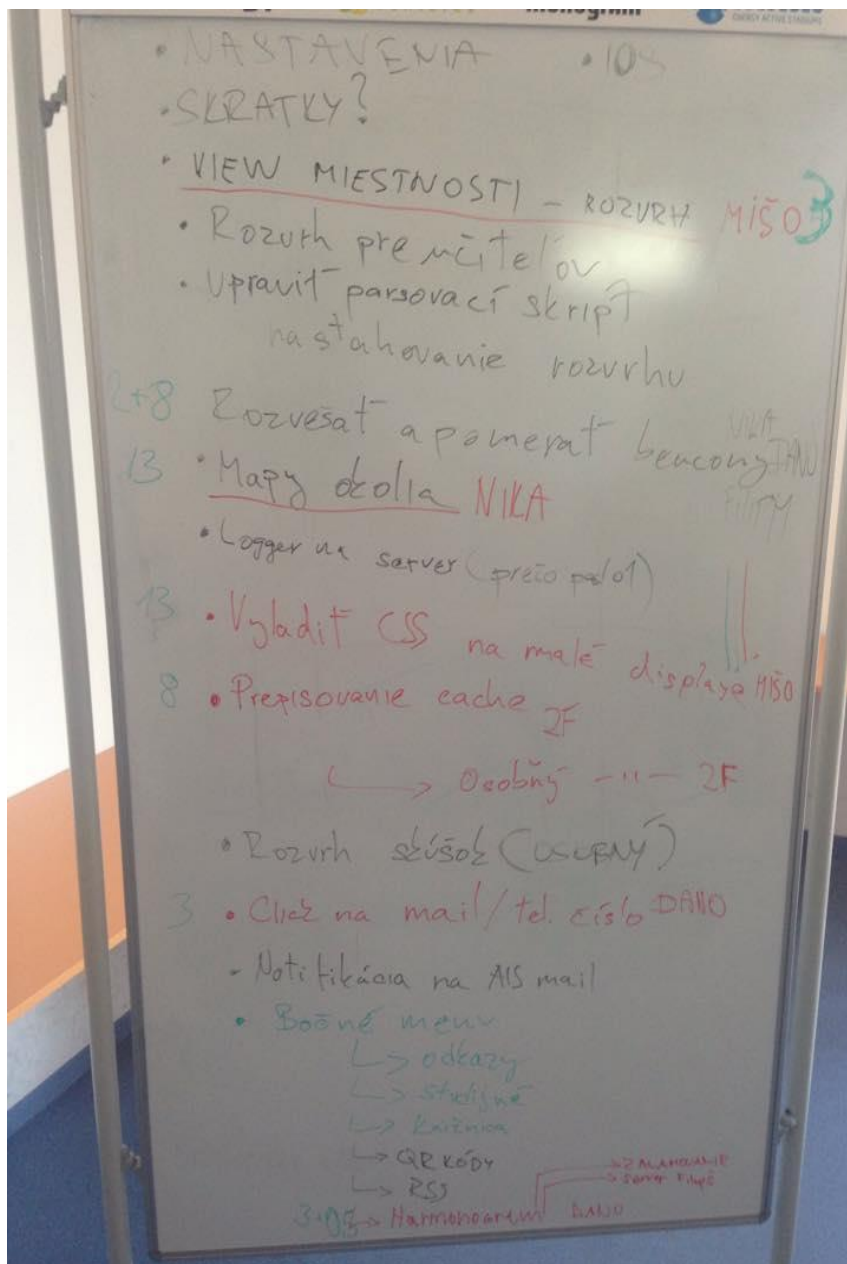 ENERGY ACTIVE STADIUMS
• NASTAVENIA • IOS
• SKRATKY?
• VIEW MIESTNOSTI - ROZVRH MIŠO 3
• Rozvrh pre učiteľov
• Upraviť parsovací skript
na sťahovanie rozvrhu
2+8 Rozvešať a pomerať beacony DANO
13 • Mapy okolia NIKA
• Logger na server (prečo padol)
13 • Vyladiť CSS na malé displaye MIŠO
8 • Prepisovanie cache 2F
↳ Osobný -"- 2F
• Rozvrh skúšok (OSOBNÝ)
3 • Click na mail/tel. číslo DANO
- Notifikácia na AIS mail
• Bočné menu
↳ odkazy
↳ študijné
↳ knižnica
↳ QR KÓDY
↳ RSS
→ server Filip
↳ Harmonogram DANO